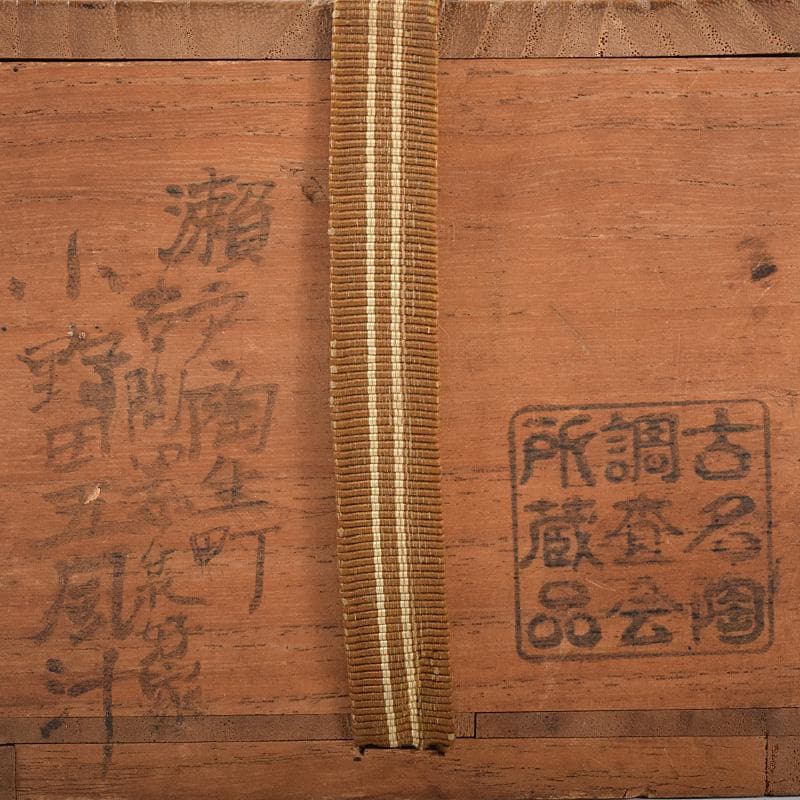 古名陶
調査会
所蔵品
瀬戸陶生町
古陶器 好家
小野田五風